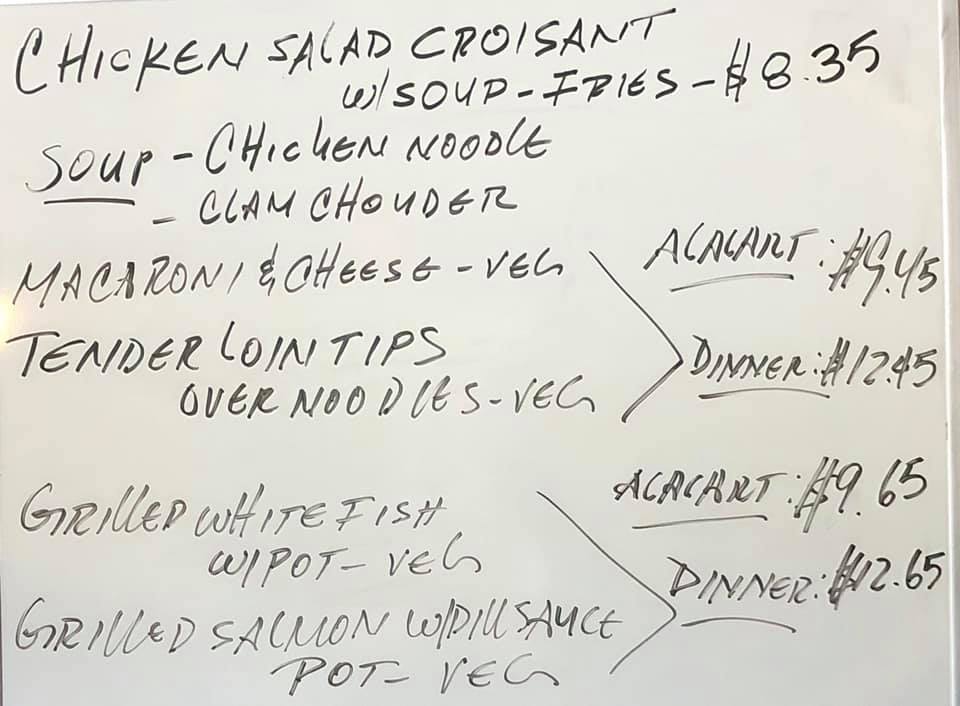 CHICKEN SALAD CROISANT
W/SOUP-FRIES-$8.35
SOUP - CHICKEN NOODLE
- CLAM CHOUDER
MACARONI & CHEESE - VEG
ACALART: $9.45
TENDER LOIN TIPS
OVER NOODLES - VEG
DINNER: $12.45
GRILLED WHITE FISH
W/POT - VEG
ACALART: $9.65
DINNER: $12.65
GRILLED SALMON W/DILL SAUCE
POT - VEG